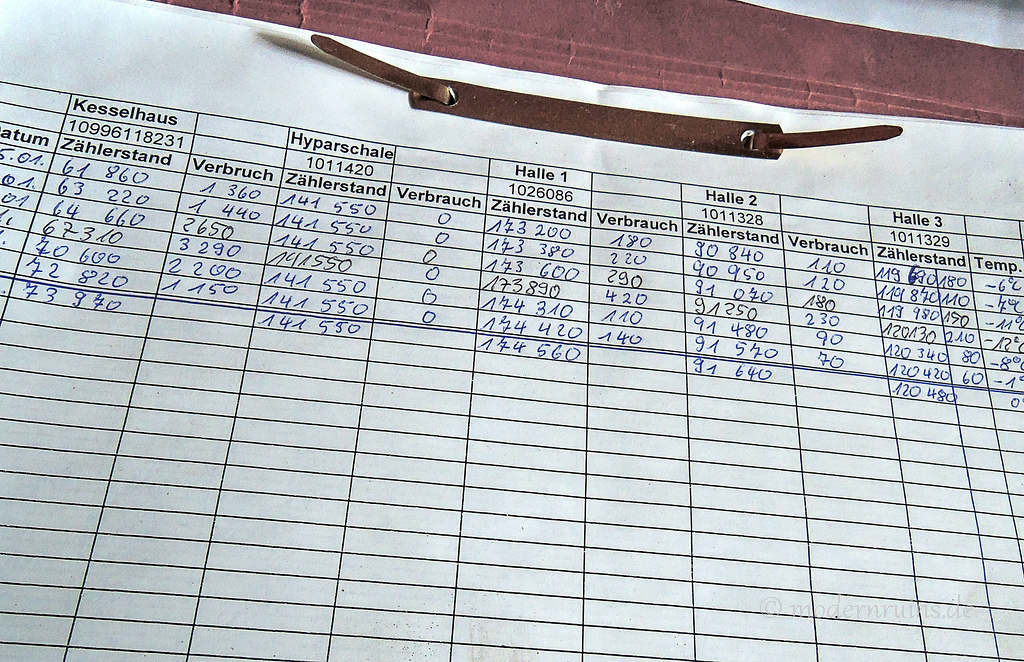 Kesselhaus Hyparschale Halle 1 Halle 2 Halle 3
10996118231 1011420 1026086 1011328 1011329
Datum Zählerstand Verbruch Zählerstand Verbrauch Zählerstand Verbrauch Zählerstand Verbrauch Zählerstand Temp.
5.01. 61 860 1 360 141 550 0 173 200 180 90 840 110 119 690 180 -6°C
01. 63 220 1 440 141 550 0 173 380 220 90 950 120 119 870 110 -7°C
01 64 660 2650 141 550 0 173 600 290 91 070 180 119 980 150 -11°C
67310 3 290 141550 0 173890 420 91250 230 120130 210 -12°C
70 600 2 200 141 550 0 174 310 110 91 480 90 120 340 80 -8°C
72 820 1 150 141 550 0 174 420 140 91 570 70 120 420 60 -1°
73 970 141 550 174 560 91 640 120 480 0°
© modernruins.de